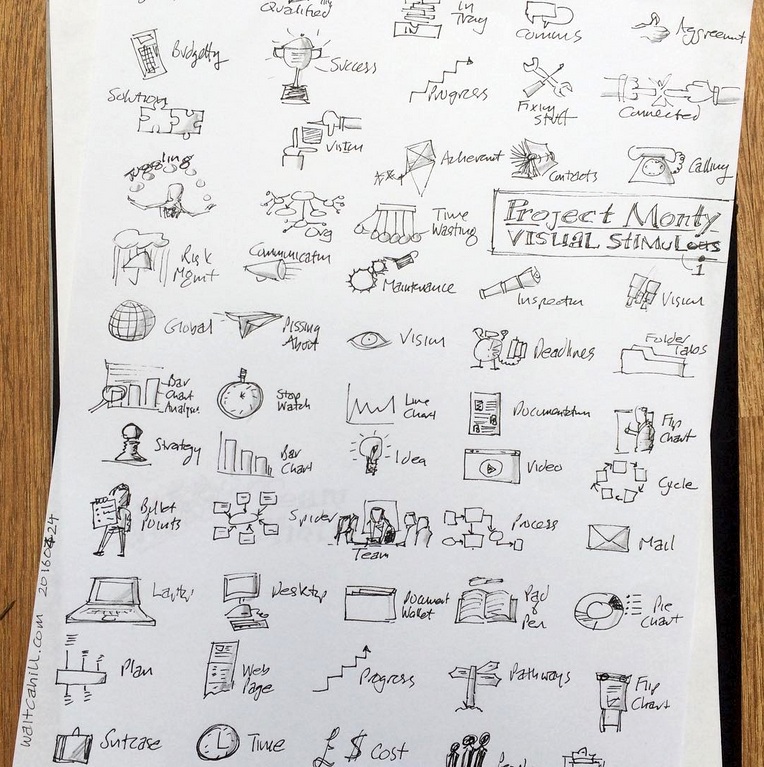 Qualified
In
Tray
Comms
Agreement
Budgetty
Success
Progress
Fixing
Stuff
Connected
Solution
Vision
Juggling
Contracts
Calling
Org
Time
Wasting
Project Monty
VISUAL STIMULUS
1
Risk
Mgmt
Maintenance
Vision
Global
Pissing
About
Vision
Deadlines
Folder
Tabs
Bar
Chart
Stop
Watch
Line
Chart
Flip
Chart
Strategy
Bar
Chart
Idea
Video
Cycle
Bullet
Points
Spider
Team
Process
Mail
Laptop
Desktop
Document
Wallet
Pad
&
Pen
Pie
Chart
Plan
Web
Page
Progress
Pathways
Flip
Chart
Suitcase
Time
£ $ Cost
waltcahill.com